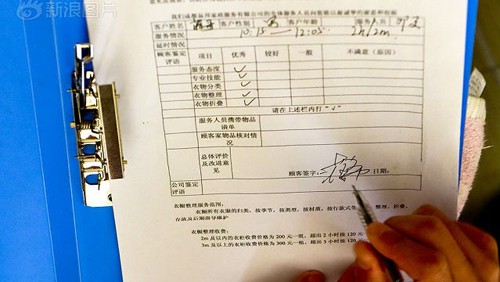 新浪图片
客户姓名 客户性别 男 客户年龄 服务人员
服务情况 10:15—12:05
延时情况
顾客鉴定评语 项目 优秀 较好 一般 不满意（原因）
服务态度 ✓
专业技能 ✓
衣物分类 ✓
衣物整理 ✓
衣物折叠 ✓
请在上述栏内打“√”
服务人员携带物品清单
顾客家物品核对情况
总体评价及改进意见
顾客签字： 日期：
公司鉴定评语
衣橱整理服务范围：
衣橱所有衣服的归类，按季节，按类型，按材质，按行款式
整理，折叠，
存放及后期指导维护
衣橱整理收费：
2m 及以内的衣柜收费价格为 200 元一组，超出 2 小时按 120 元
3m 及以上的衣柜收费价格为 300 元一组，超出 3 小时按 120